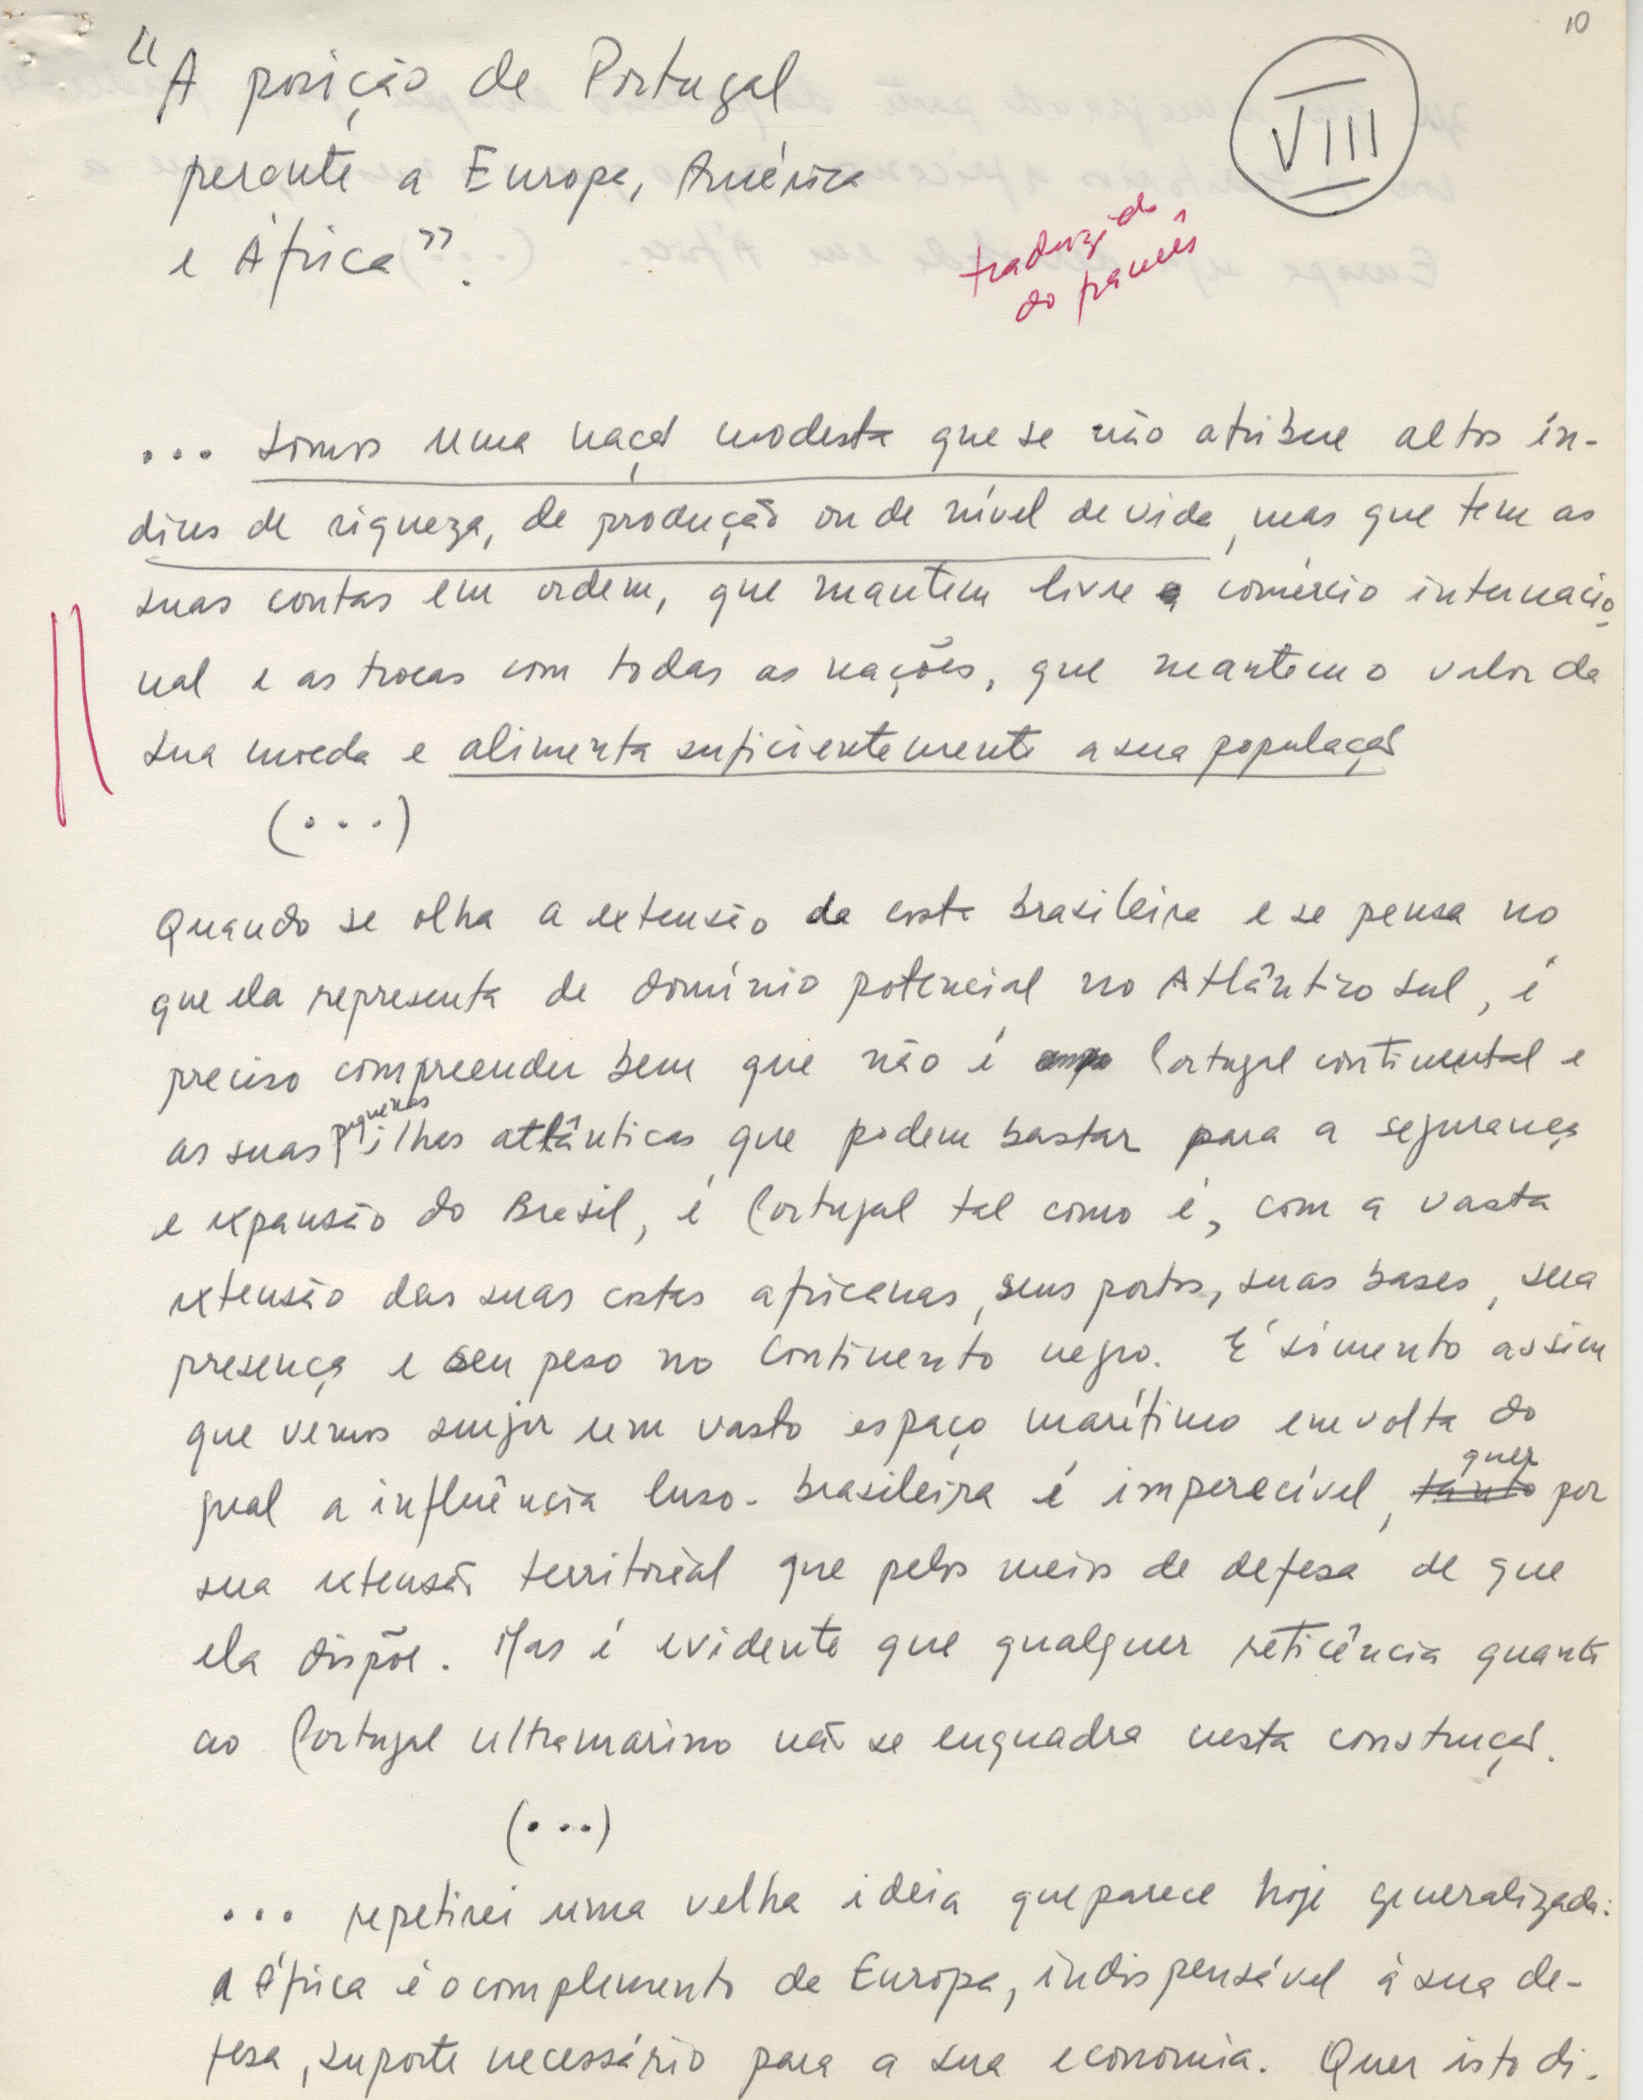 10
"A posição de Portugal
perante a Europa, América
e África".
VIII
traduzido
do francês
... somos uma nação modesta que se não atribue altos ín-
dices de riqueza, de produção ou de nível de vida, mas que tem as
suas contas em ordem, que mantem livre o comércio internacio
nal e as trocas com todas as nações, que mantem o valor da
sua moeda e alimenta suficientemente a sua população
(...)
Quando se olha a extensão da costa brasileira e se pensa no
que ela representa de domínio potencial no Atlântico sul, é
preciso compreender bem que não é Portugal continental e
as suas pequenas ilhas atlânticas que podem bastar para a segurança
e expansão do Brasil, é Portugal tal como é, com a vasta
extensão das suas costas africanas, seus portos, suas bases, sua
presença e seu peso no Continente negro. É sómente assim
que vemos surgir um vasto espaço marítimo em volta do
qual a influência luso-brasileira é imperecível, tanto quer por
sua extensão territorial que pelos meios de defesa de que
ela dispõe. Mas é evidente que qualquer reticência quanto
ao Portugal ultramarino não se enquadra nesta construção.
(...)
... repetirei uma velha ideia que parece hoje generalizada:
a África é o complemento da Europa, indispensável à sua de-
fesa, suporte necessário para a sua economia. Quer isto di-